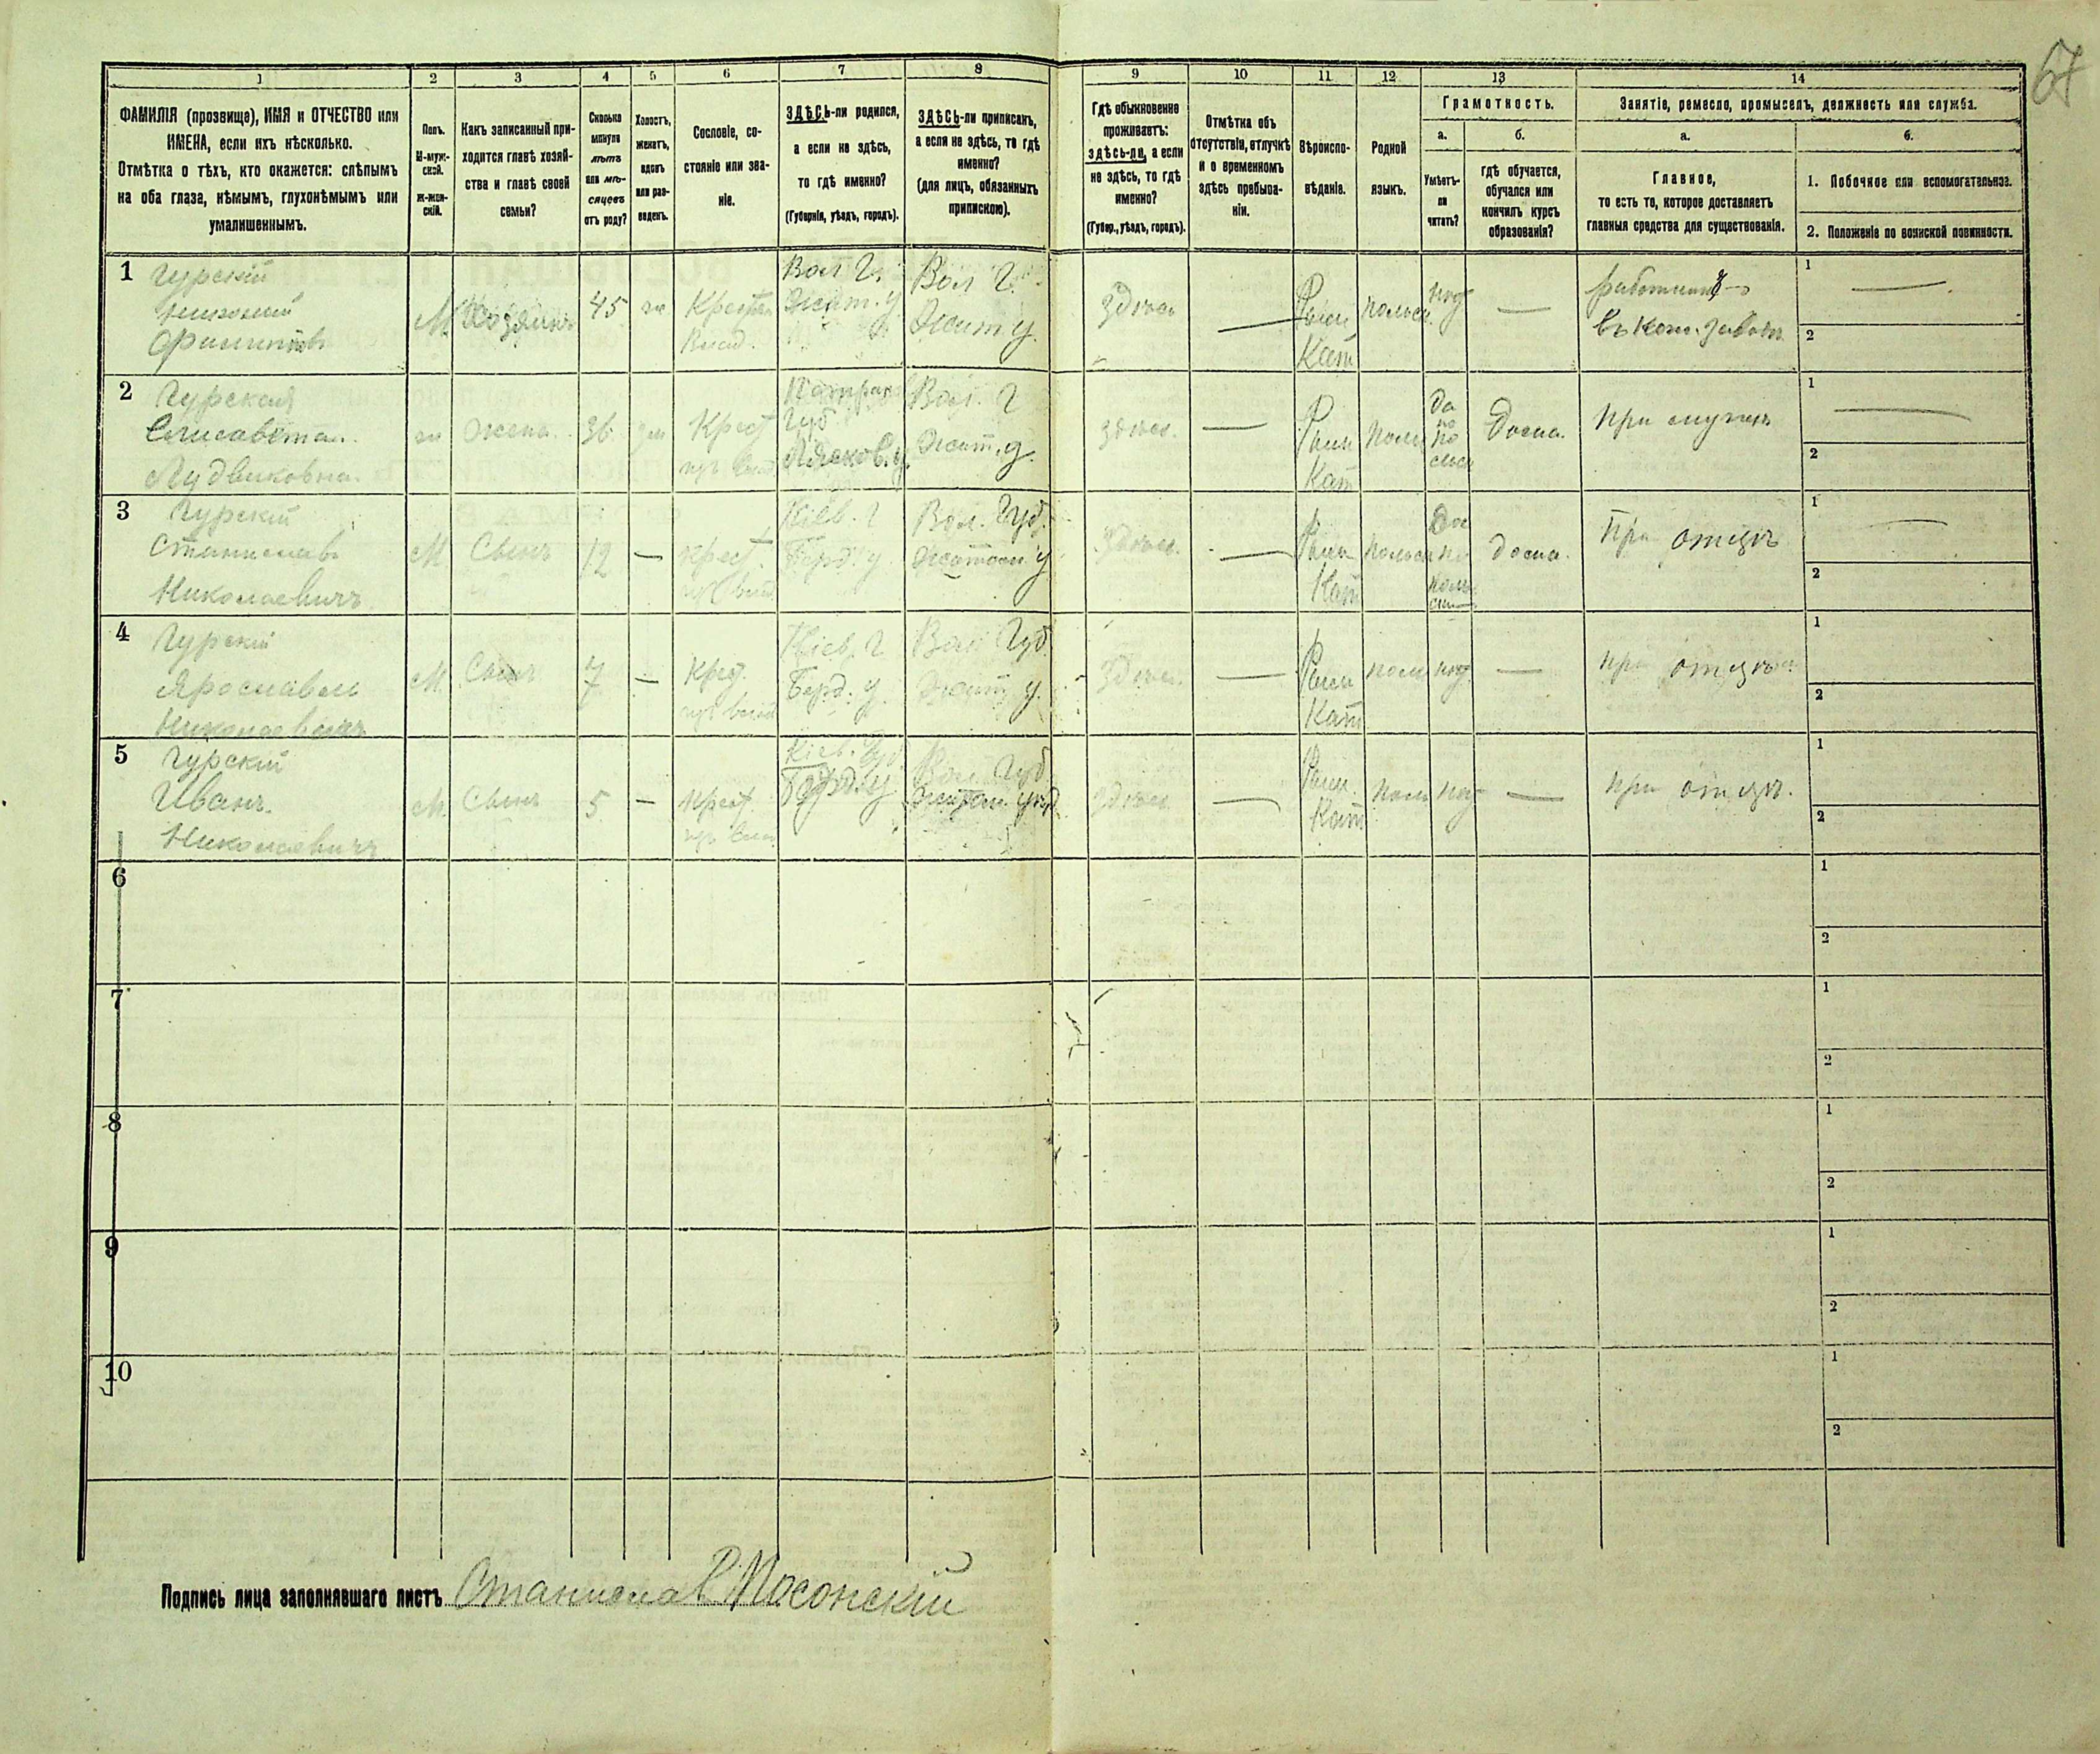 67
1 2 3 4 5 6 7 8 9 10 11 12 13 14
ФАМИЛІЯ (прозвище), ИМЯ и ОТЧЕСТВО или
ИМЕНА, если ихъ нѣсколько.
Отмѣтка о тѣхъ, кто окажется: слѣпымъ
на оба глаза, нѣмымъ, глухонѣмымъ или
умалишеннымъ.
Полъ.
М-муж-
ской.
Ж-жен-
скій.
Какъ записанный при-
ходится главѣ хозяй-
ства и главѣ своей
семьи?
Сколько
минуло
лѣтъ
или мѣ-
сяцевъ
отъ роду?
Холостъ,
женатъ,
вдовъ
или раз-
веденъ.
Сословіе, со-
стояніе или зва-
ніе.
ЗДѢСЬ-ли родился,
а если не здѣсь,
то гдѣ именно?
(Губернія, уѣздъ, городъ).
ЗДѢСЬ-ли приписанъ,
а если не здѣсь, то гдѣ
именно?
(для лицъ, обязанныхъ
припискою).
Гдѣ обыкновенно
проживаетъ:
здѣсь-ли, а если
не здѣсь, то гдѣ
именно?
(Губер., уѣздъ, городъ).
Отмѣтка объ
отсутствіи, отлучкѣ
и о временномъ
здѣсь пребыва-
ніи.
Вѣроиспо-
вѣданіе.
Родной
языкъ.
Грамотность.
а.
Умѣетъ-
ли
читать?
б.
гдѣ обучается,
обучался или
кончилъ курсъ
образованія?
Занятіе, ремесло, промыселъ, должность или служба.
а.
Главное,
то есть то, которое доставляетъ
главныя средства для существованія.
б.
1. Побочное или вспомогательное.
2. Положеніе по воинской повинности.
1
Гурскій
М
Хозяинъ
45
Вол Г.
Жит. у
Вол Г.
Жит у.
здѣсь
Рим
Кат
польск.
нѣт
1
2
2
Гурская
Елисавета
Людвиковна
ж
Жена
36
Крест
Губ
Вол. Г
Жит. у.
здѣсь.
Рим
Кат
Поль
Да
по
Дома.
При мужѣ
1
2
3
Гурскій
Станиславъ
Николаевичъ
М
Сынъ
12
—
Крест.
Кіев. Г
Берд. у
Вол. Губ.
Житом. у
здѣсь.
Рим
Кат
польск
Да
дома.
При отцѣ
1
2
4
Гурскій
Ярославъ
Николаевичъ
М
Сынъ
7
—
Крест.
Кіев. Г
Берд. у.
Вол Губ
Жит у.
здѣсь.
Рим
Кат
поль
нѣт
—
при отцѣ
1
2
5
Гурскій
Иванъ.
Николаевичъ
М
Сынъ
5
—
Крест.
Кіев. Губ
Берд. у
Вол Губ
Житом. уѣзд.
здѣсь
Рим.
Кат
поль
нѣт
—
при отцѣ.
1
2
6
1
2
7
1
2
8
1
2
9
1
2
10
1
2
Подпись лица заполнявшаго листъ Станислав